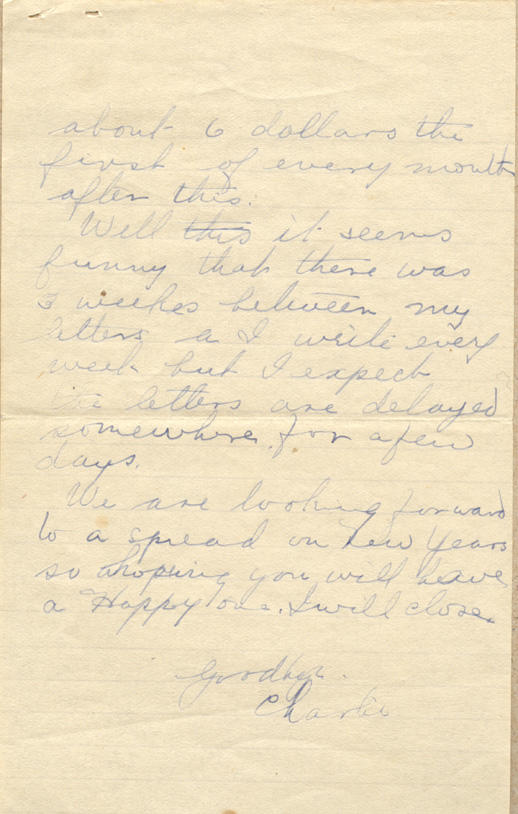 about 6 dollars the
first of every month
after this.
Well this it seems
funny that there was
3 weekes between my
letters a I write every
week but I expect
the letters are delayed
somewhere for a few
days.
We are looking forward
to a spread on New Years
so hoping you will have
a "Happy one. I will close.
Goodbye.
Charlie